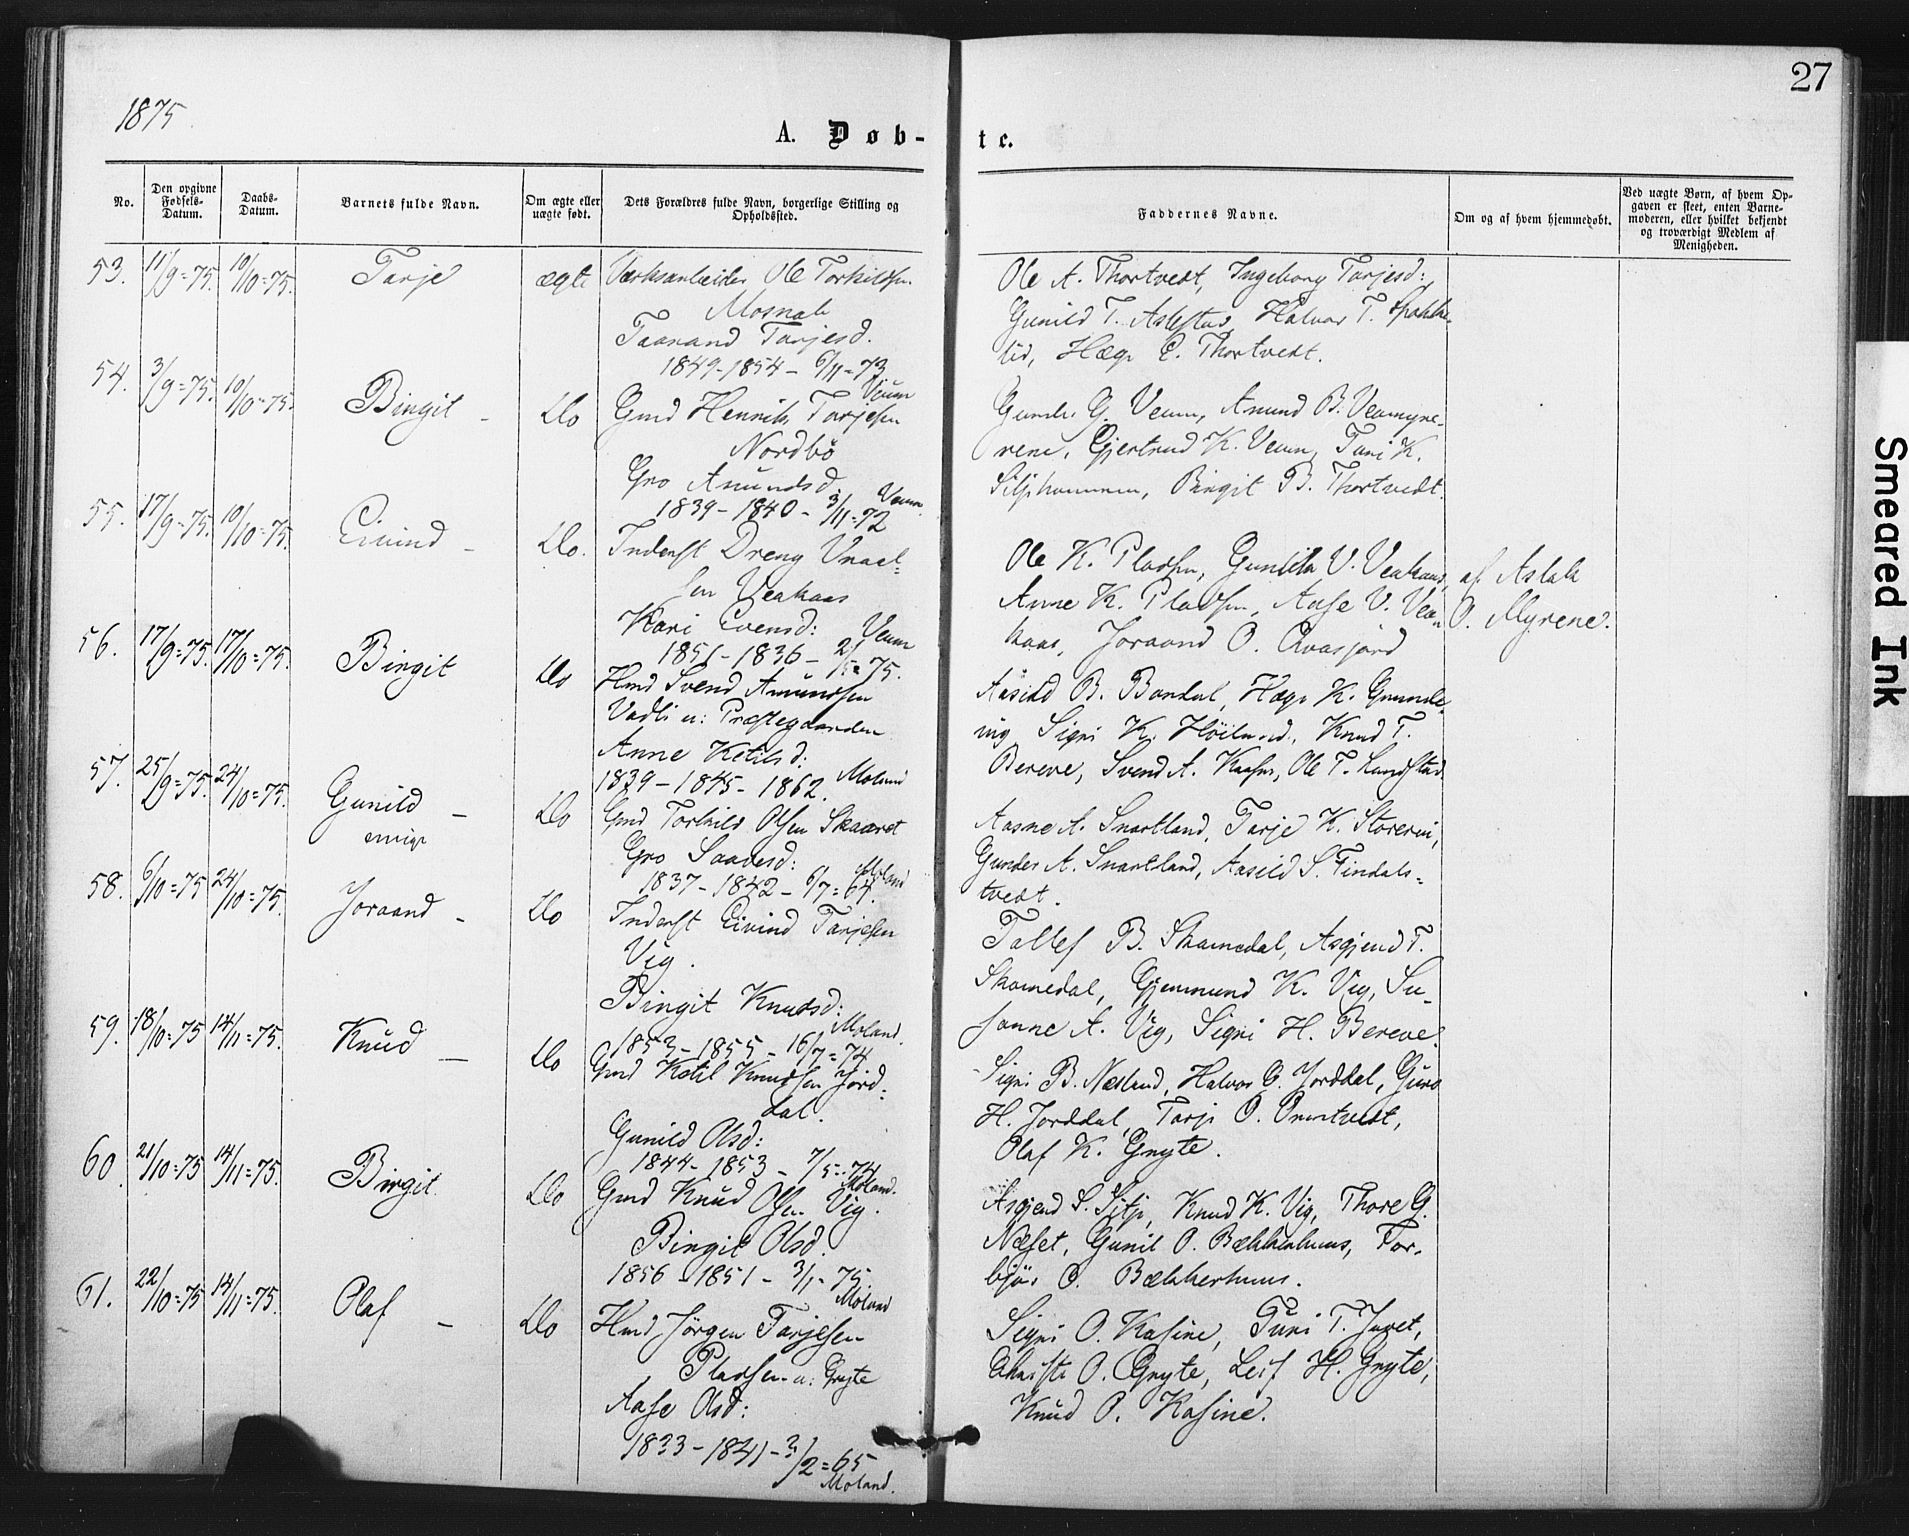 1875
27
A. Døb-
te.
No.
Den opgivne Fødsels-Datum.
Daabs-Datum.
Barnets fulde Navn.
Om ægte eller uægte født.
Dets Forældres fulde Navn, borgerlige Stilling og Opholdssted.
Faddernes Navne.
Om og af hvem hjemmedøbt.
Ved uægte Børn, af hvem Opgaven er skeet, enten Barnemoderen, eller hvilket bekjendt og troværdigt Medlem af Menigheden.
53. 11/9=75. 10/10=75. Tarje ægte
Ole Torkildsen
Mosnab
Taarand Tarjesd.
1849-1854 - 6/11=73
Veum
Ole A. Thortvedt, Ingeborg Tarjesd:,
Gunild T. Aslestad, Halvor T.
lid, Hæge E. Thortvedt.
54. 3/9=75. 10/10=75. Birgit - Do
Gmd Henrik Tarjesen
Nordbö
Gro Amundsd.
1839-1840 - 3/11=72 Veum
G. Veum, Amund B.
rene, Gjertrud K. Veum, Turi K.
Birgit B. Thortvedt.
55. 17/9=75. 10/10=75. Eivind - Do.
Inderst Dreng
sen Veakaas
Kari Evensd: Veum
1851-1836 - 2/5=75.
Ole K. Pladsen, V. Veakaas,
Anne K. Pladsen, Aase V. Vea-
kaas, Joraand O. Kvasjord
af Aslak
O. Myrene.
56. 17/9=75. 17/10=75. Birgit Do
Hmd Svend Amundsen
Vadli u: Præstegaarden
Anne Ketilsd:
1839-1845-1862. Moland
Aasild B. Bandal, Hæge K.
ing, Signi K. Høilund, Knud T.
Bereve, Svend A. Ole T. Lundstad
57. 25/9=75. 24/10=75. Gunild - Do
Gmd Torkild Olsen Skaaret
Gro Saavesd:
1837-1842 - 6/7=64. Moland
Aasne A. Snartland, Tarje K.
Gunder A. Snartland, Aasild S. Findals-
tvedt.
58. 6/10=75 24/10=75. Joraand - Do
Inderst Eivind Tarjesen
Vig.
Birgit Knudsd:
1853-1855 - 16/7=74 Moland.
Tallef B. Skomedal, Asgjerd T.
Skomedal, Gjermund K. Vig, Su-
sanne A. Vig, Signi H. Bereve.
59. 18/10=75 14/11=75. Knud - Do
Gmd Ketil Knudsen Jord-
dal.
Gunild Olsd:
1844-1853 - 7/5=74
Moland.
Signi B. Næsland, Halvor G. Jorddal, Guro
H. Jorddal, Tarje O.
Olaf K. Gryte.
60 21/10=75 14/11=75. Birgit. Do
Gmd Knud Olsen Vig.
Birgit Olsd.
1856-1851 - 3/1=75.
Moland
Asgjerd S. Knud K. Vig, Thore G.
Næset, Gunil O. Bækkerhuus, Tor-
bjør O. Bækkerhuus.
61. 22/10=75 14/11=75. Olaf - Do
Hmd Jörgen Tarjesen
Pladsen u: Gryte
Aase Olsd:
1833-1841-3/2=65
Moland.
Signi O. Kasine, Turi T. Juvet,
O. Gryte, Leif H. Gryte,
Knud O. Kasine.
Smeared Ink